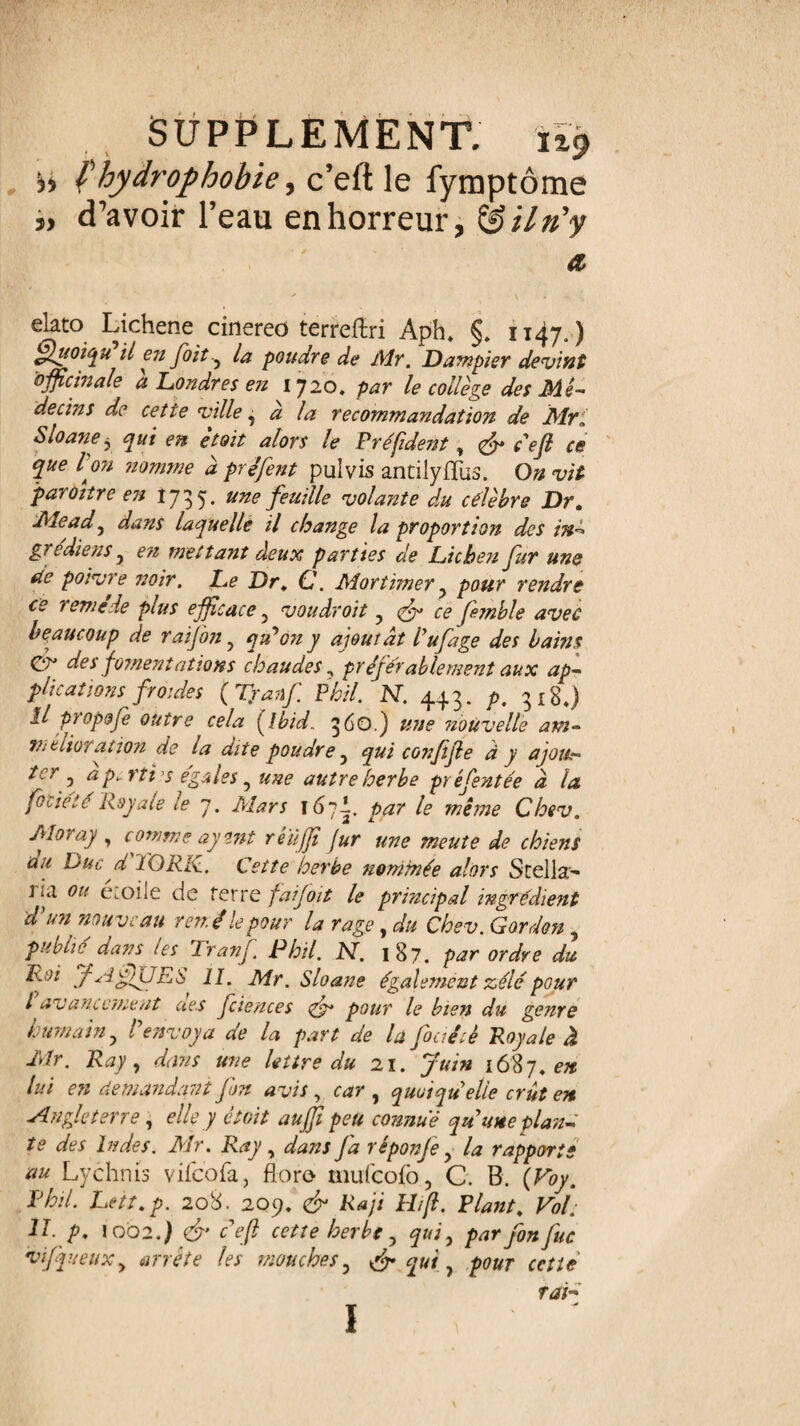 SUPPLEMENT. 129
„ l'hydrophobie, c'eſt le ſymptôme
„ d'avoir l'eau en horreur, & il n'y
a
elato Lichene cinereo terreſtri Aph. §. 1147.)
Quoiqu'il en ſoit, la poudre de Mr. Dampier devint
officinale à Londres en 1720. par le collège des Mé-
decins de cette ville, à la recommandation de Mr.
Sloane, qui en étoit alors le Préſident, & c'eſt ce
que l'on nomme à préſent pulvis antilyſſus. On vit
paroître en 1735. une feuille volante du célèbre Dr.
Mead, dans laquelle il change la proportion des in-
grédiens, en mettant deux parties de Lichen ſur une
de poivre noir. Le Dr. C. Mortimer, pour rendre
ce remède plus efficace, voudroit, & ce ſemble avec
beaucoup de raiſon, qu'on y ajoutât l'uſage des bains
& des fomentations chaudes, préférablement aux ap-
plications froides (Tranſ. Phil. N. 443. p. 318.)
Il propoſe outre cela (Ibid. 360.) une nouvelle am-
mélioration de la dite poudre, qui conſiſte à y ajou-
ter, à parties égales, une autre herbe préſentée à la
ſociété Royale le 7. Mars 167½. par le même Chev.
Moray, comme ayant réüſſi ſur une meute de chiens
du Duc d'YORK. Cette herbe nommée alors Stella-
ria ou étoile de terre faiſoit le principal ingrédient
d'un nouveau remède pour la rage, du Chev. Gordon,
publié dans les Tranſ. Phil. N. 187. par ordre du
Roi JAQUES II. Mr. Sloane également zélé pour
l'avancement des ſciences & pour le bien du genre
humain, l'envoya de la part de la ſociété Royale à
Mr. Ray, dans une lettre du 21. Juin 1687. en
lui en demandant ſon avis, car, quoiqu'elle crût en
Angleterre, elle y étoit auſſi peu connuë qu'une plan-
te des Indes. Mr. Ray, dans ſa réponſe, la rapporte
au Lychnis viſcoſa, floro muſcoſo, C. B. (Voy.
Phil. Lett. p. 208. 209. & Raji Hiſt. Plant. Vol.
II. p. 1002.) & c'eſt cette herbe, qui, par ſon ſuc
viſqueux, arrête les mouches, & qui, pour cette
rai-
I